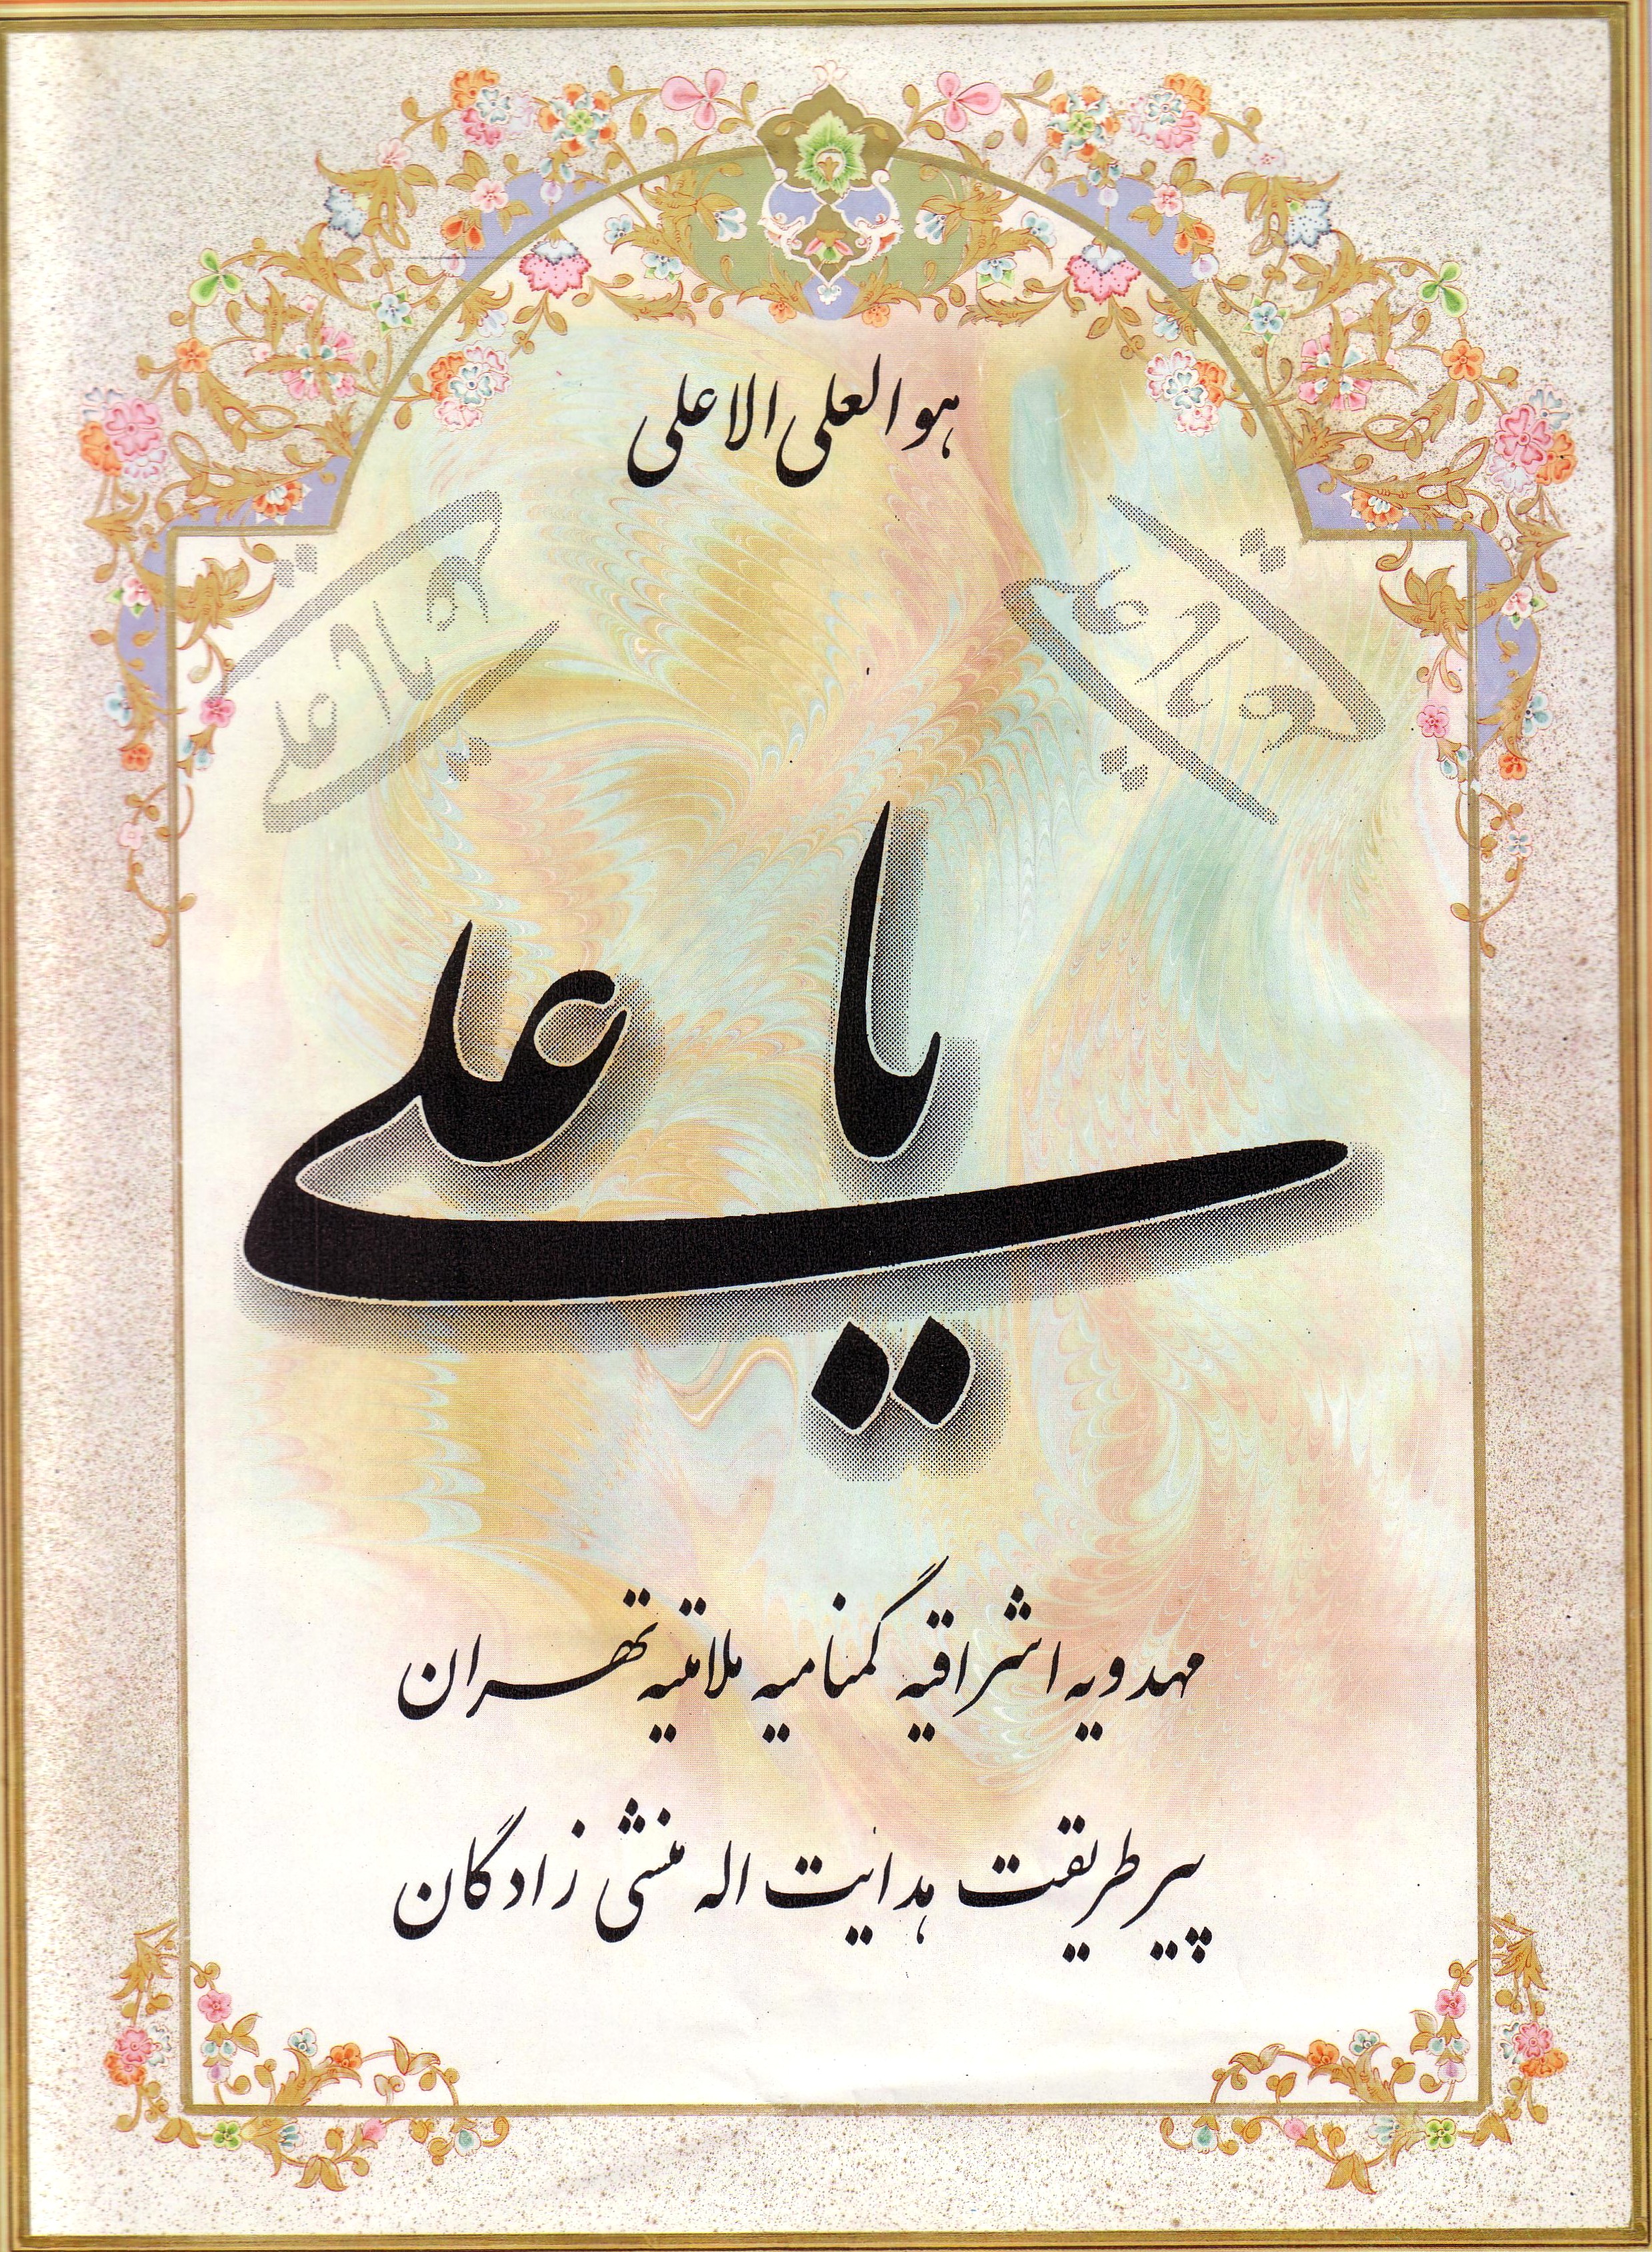 هو العلی الاعلی
یا علی
مهدویه اشراقیه گمنامیه ملامتیه تهران
پیر طریقت هدایت اله منشی زادگان